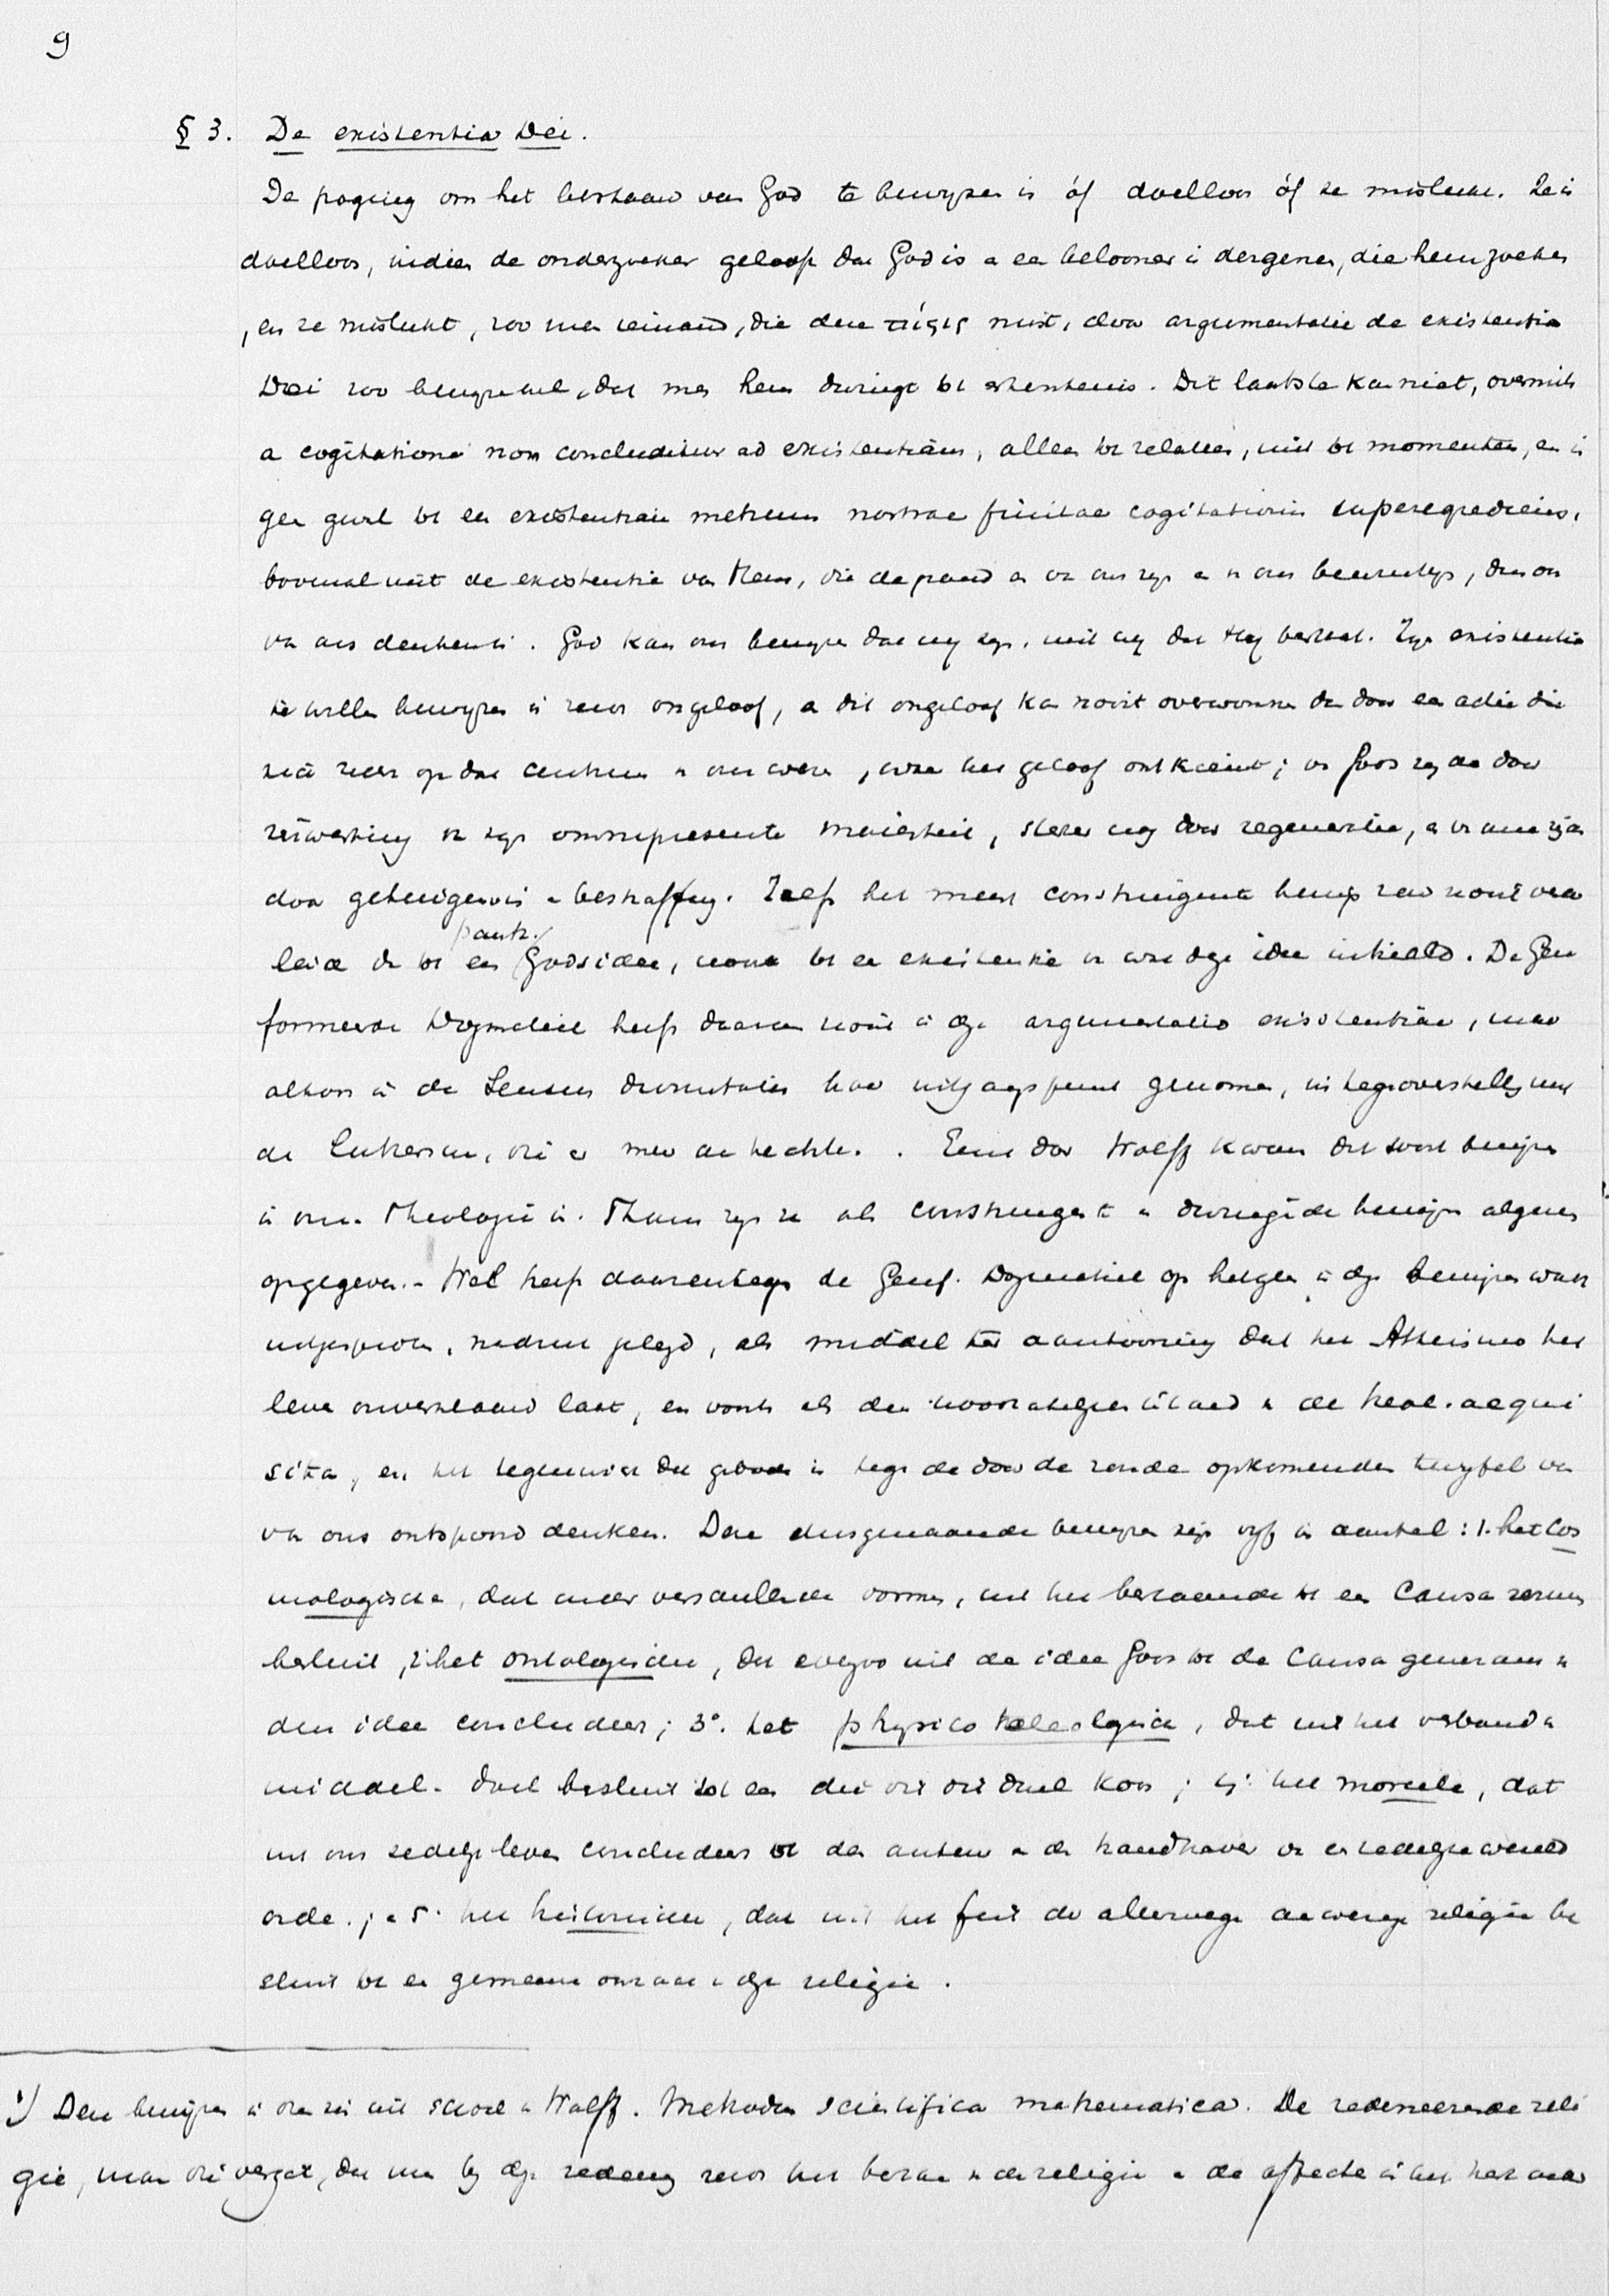 9
§ 3. De existentia Dei.
De poging om het bestaan van God te bewyzen is óf doelloos óf ze mislukt. Ze is
doelloos, indien de onderzoeker gelooft dat God is en een belooner is dergenen, die hem zoeken
, en ze mislukt, zoo men iemand, die deze πίστις mist, door argumentatie de existentia
Dei zoo bewyzen wil, dat men hem dwingt tot erkentenis. Dit laatste kan niet, overmits
a cogitatione non concluditur ad existentiam, alleen tot relaties, niet tot momenten, en in
geen geval tot een existentiam metrum nostrae finitae cogitationis superegrediens,
bovenal niet de existentie van Hem, die de grond en van ons zyn en van ons bewustzyn, dus ook
van ons denken is. God kan ons bewyzen dat wy zyn, niet wy dat Hy bestaat. Zyn existentia
te willen bewyzen is reeds ongeloof, en dit ongeloof kan nooit overwonnen dan door een actie die
zich richt op dat centrum van ons wezen, waar het geloof ontkiemt; van Gods zyde door
inwerking van zyn omnipresente majesteit, sterker nog door regeneratie, en van onze zyde
door getuigenis en bestraffing. Zelfs het meest constringente bewys zou nooit verder
panth.
leiden dan tot een Godsidee, nooit tot een existentie van wat deze idee inhield. De Gere
formeerde Dogmatiek heeft daarom nooit in deze argumentatio existentiae, maar
altoos in de Sensus divinitatis haar uitgangspunt genomen, in tegenoverstelling met
de Lutherschen, die er meer aan hechtten. Eerst door Wolff kwam dit soort bewyzen
in onze Theologie in. Thans zyn ze als constringente en dwingende bewyzen algemeen
opgegeven. - Wel heeft daarentegen de Geref. Dogmatiek op hetgeen in deze bewyzen waars
uitgesproken, nadruk gelegd, als middel ter aantooning dat het Atheisme het
leven onverklaard laat, en voorts als den noodzakelyken inhoud van de theol. acqui
sita, en het tegenwicht dat geboden is tegen de door de zonde opkomenden twyfel van
van ons ontspoord denken. Deze dusgenaamde bewyzen zyn vyf in aantal: 1. het Cos
mologische, dat onder verschillende vormen, uit het bestaande tot een Causa rerum
besluit, 2. het ontologische, dat evenzoo uit de idee Gods tot de Causa generans van
den idee concludeert; 3°. het physico teleologische, dat uit het verband van
middel en doel besluit tot een die dit doel koos; 4°. het moreele, dat
uit ons zedelyk leven concludeert tot den auteur en den handhaver van de zedelyke wereld
orde; en 5° het historische, dat uit het feit der allerwege aanwezige religie be
sluit tot een gemeene oorzaak van deze religie.
1) Deze bewyzen in den zin uit school van Wolff. Methodus scientifica mathematica. De redeneerende reli
gie, maar die vergat, dat men by deze redeneering reeds het bestaan van de religie en de affecten in het hart